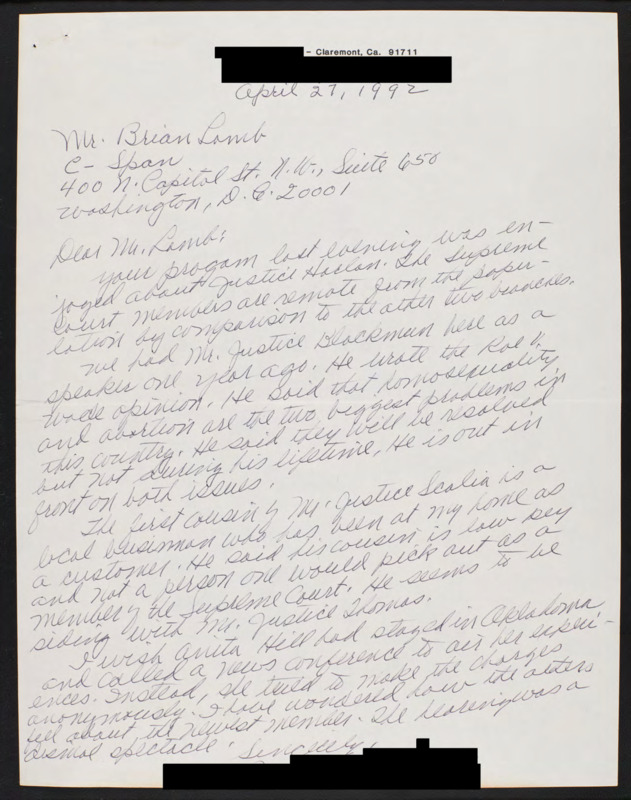 – Claremont, Ca. 91711
April 27, 1992
Mr. Brian Lamb
C-Span
400 N. Capitol St. N.W., Suite 650
Washington, D.C. 20001
Dear Mr. Lamb:
Your progam last evening was en-
joyed about Justice Harlan. The Supreme
Court members are remote from the popu-
lation by comparison to the other two branches.
We had Mr. Justice Blackmun here as a
speaker one year ago. He wrote the Roe v.
Wade opinion. He said that homosexuality
and abortion are the two biggest problems in
this country. He said they will be resolved
but not during his lifetime. He is out in
front on both issues.
The first cousin of Mr. Justice Scalia is a
local businman who has been at my home as
a customer. He said his cousin is low key
and not a person one would pick out as a
member of the Supreme Court. He seems to be
siding with Mr. Justice Thomas.
I wish Anita Hill had stayed in Oklahoma
and called a news conference to air her experi-
ences. Instead, she tried to make the charges
anonymously. I have wondered how the others
feel about the newest member. The hearing was a
dismal spectacle.
Sincerely,